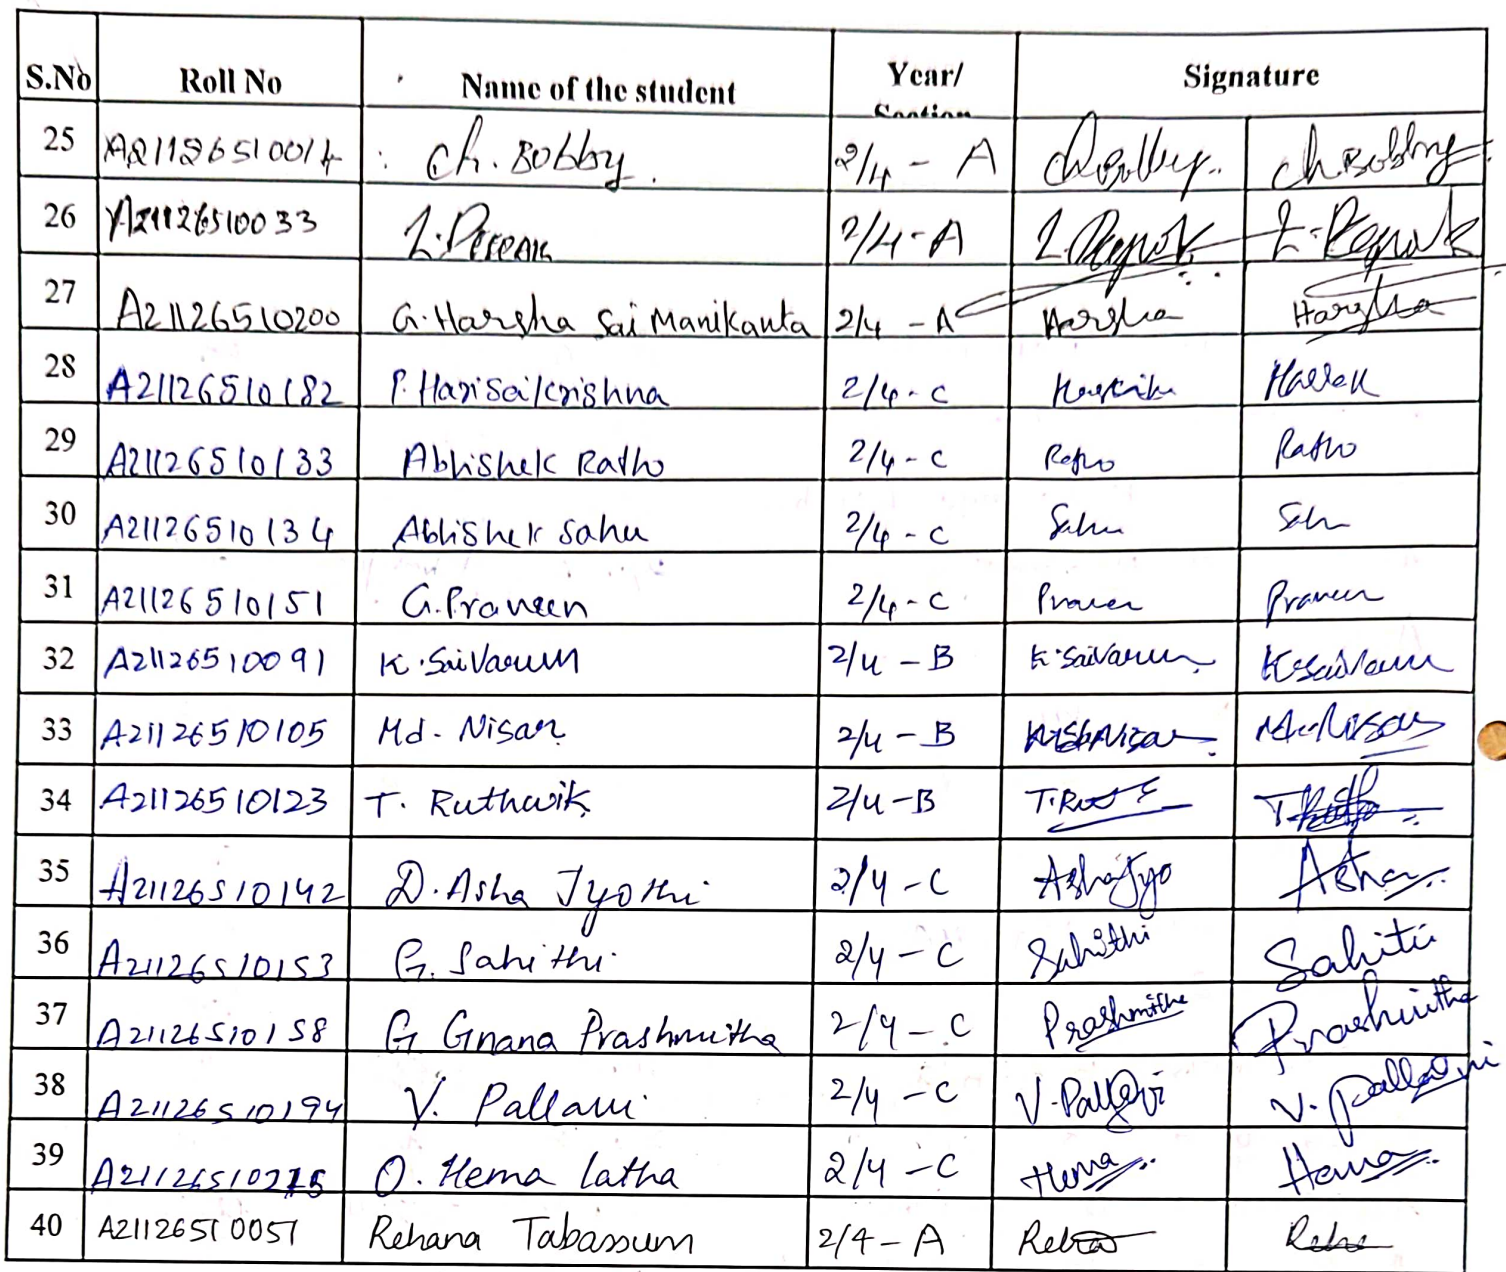 S.No Roll No Name of the student Year/ Section Signature
25 A21126510014 Ch. Bobby. 2/4 - A Ch Bobby
26 A21126510033 L. Deepak 2/4 - A L. Deepak L. Deepak
27 A21126510200 G. Harsha Sai Manikanta 2/4 - A Harsha Harsha
28 A21126510182 P. Harisaikrishna 2/4 - C
29 A21126510133 Abhishek Ratho 2/4 - C Ratho Ratho
30 A21126510134 Abhishek Sahu 2/4 - C Sahu Sahu
31 A21126510151 G. Praneen 2/4 - C Praveen Praveen
32 A21126510091 K. Sai Varun 2/4 - B K. Sai Varun K. Sai Varun
33 A21126510105 Md. Nisar 2/4 - B Md. Nisar
34 A21126510123 T. Ruthwik 2/4 - B
35 A21126510142 D. Asha Jyothi 2/4 - C AshaJyo Asha
36 A21126510153 G. Sahithi 2/4 - C Sahithi Sahiti
37 A21126510158 G Gnana Prashmitha 2/4 - C Prashmitha Prashmitha
38 A21126510194 V. Pallavi 2/4 - C V. Pallavi V. Pallavi
39 A211265102 O. Hema latha 2/4 - C Hema Hema
40 A21126510051 Rehana Tabassum 2/4 - A